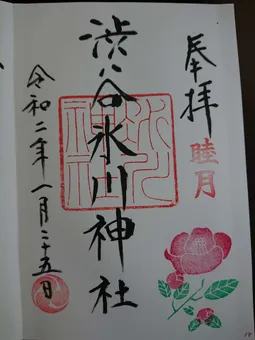 奉拝
睦月
渋谷氷川神社
氷川神社
令和二年一月二十五日